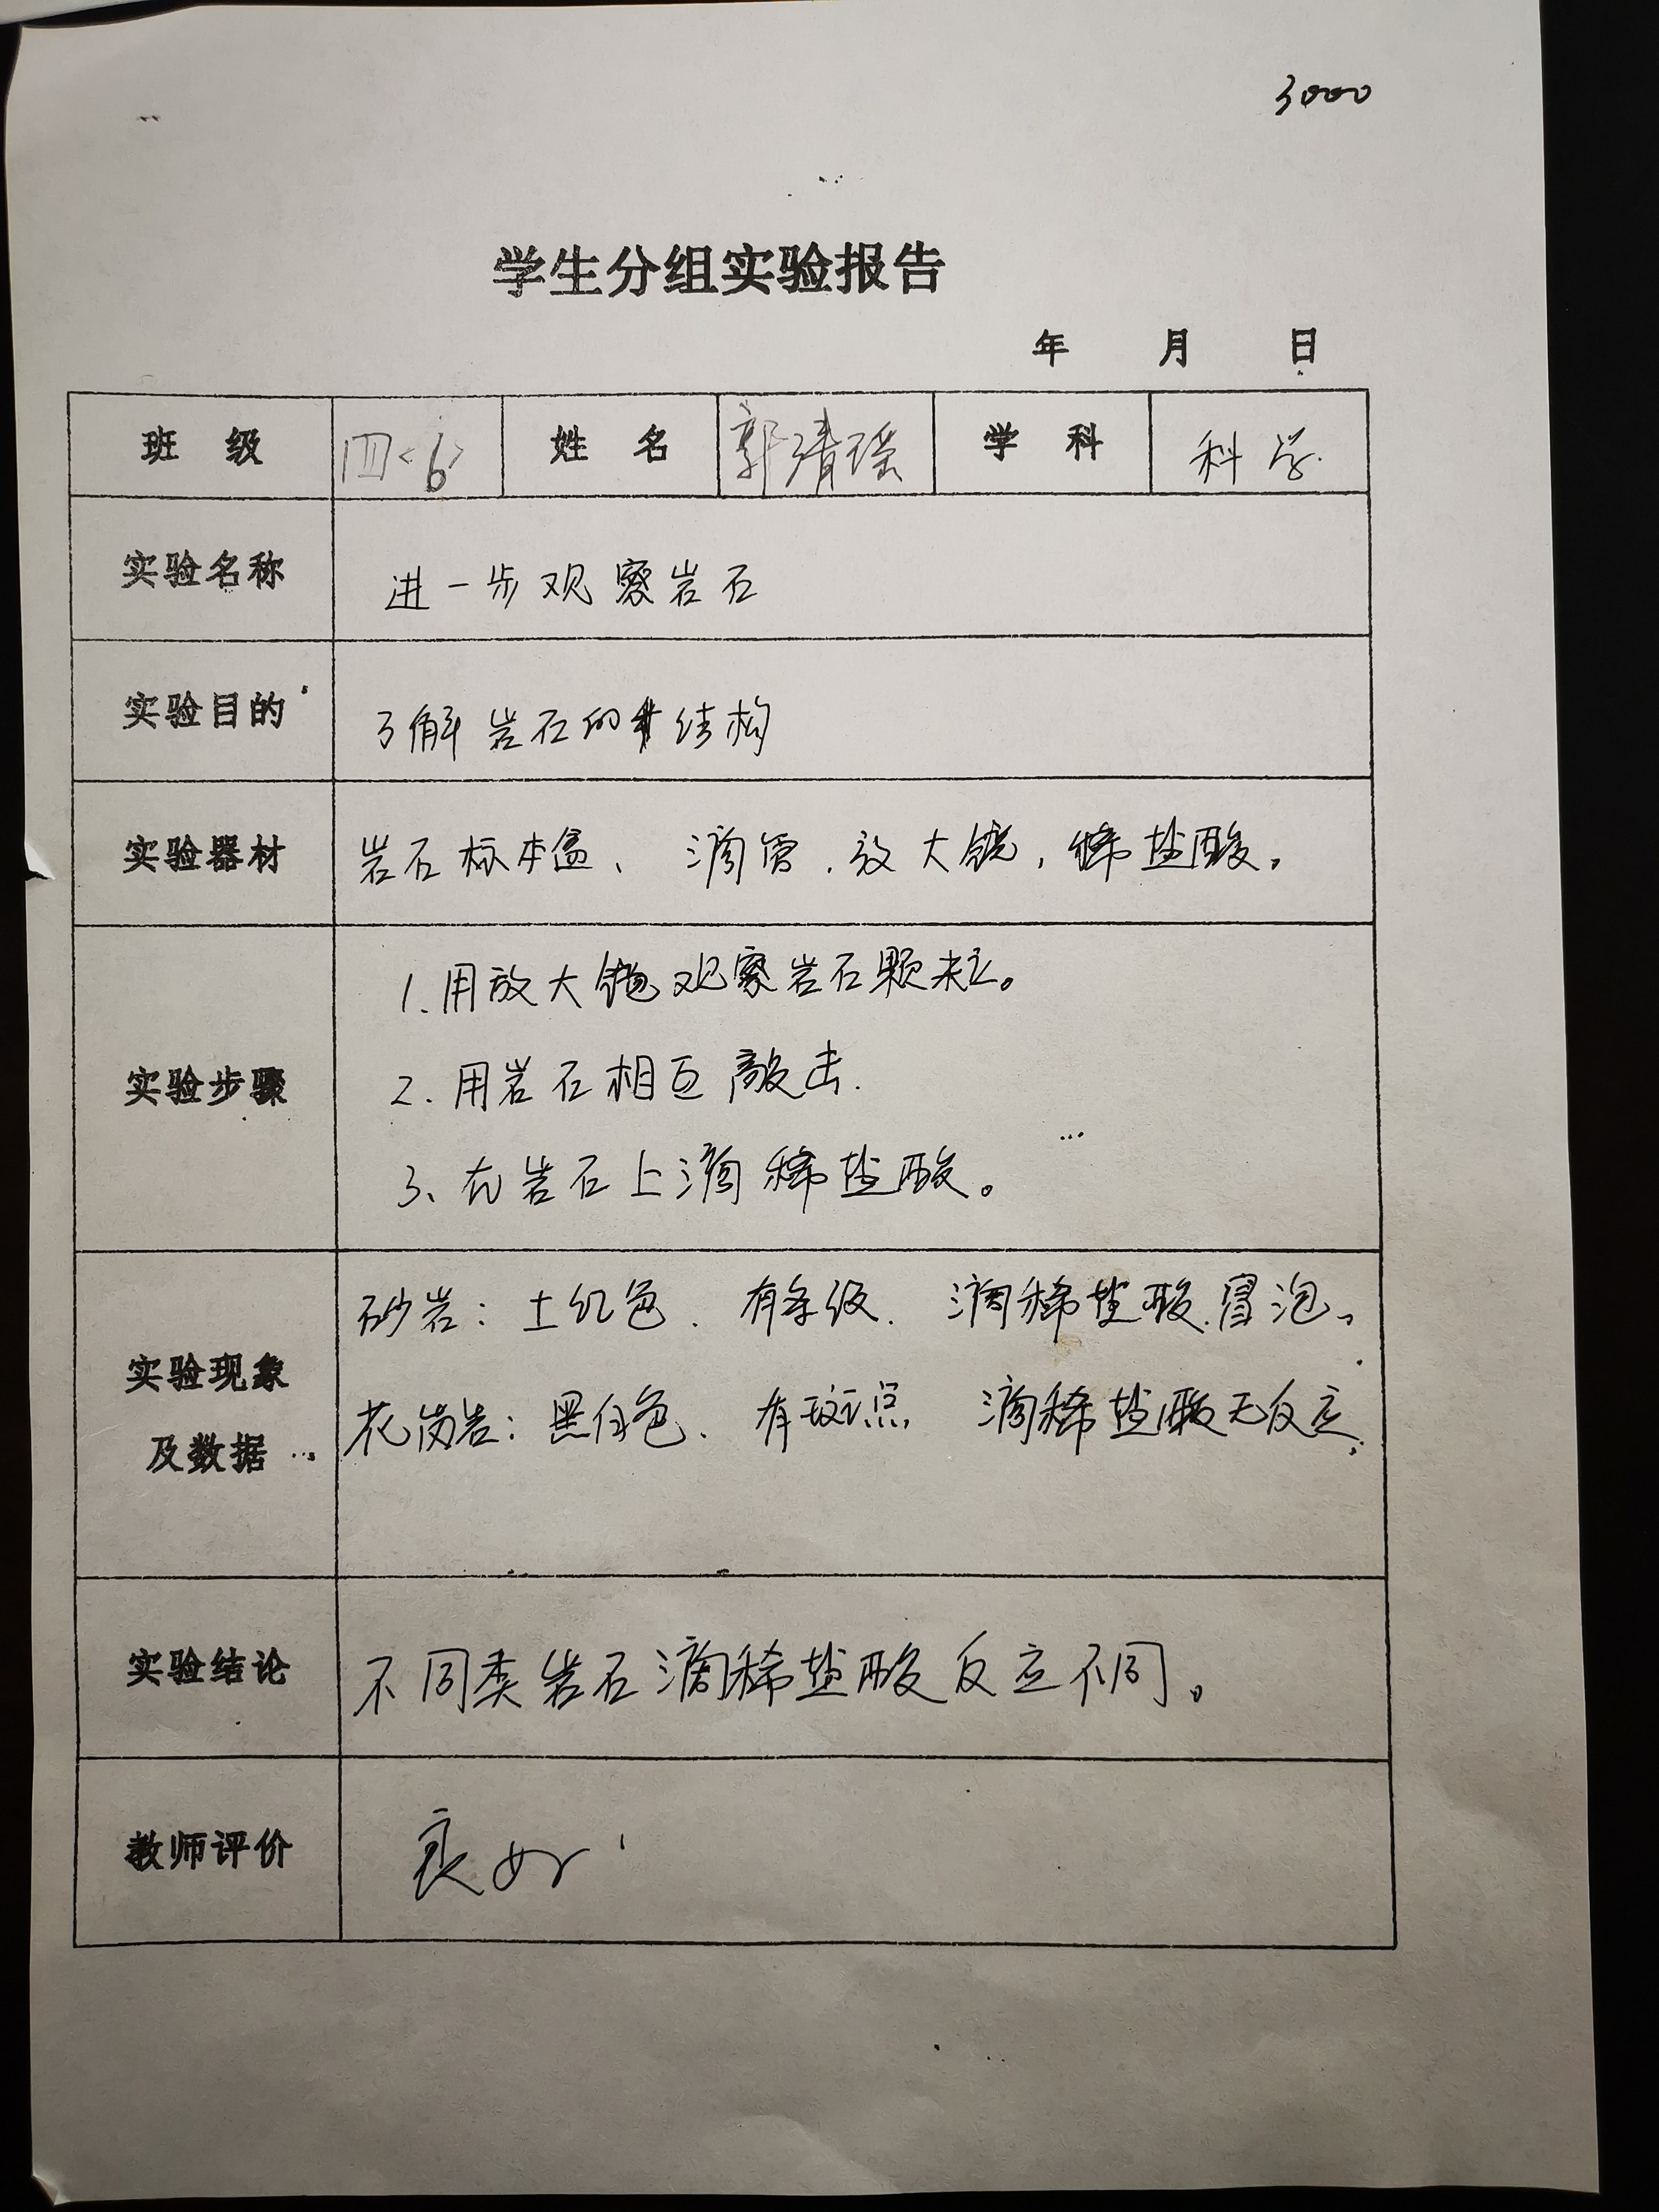 3000
学生分组实验报告
年 月 日
班 级 四<6> 姓 名 郭清瑶 学 科 科学.
实验名称 进一步观察岩石
实验目的 了解岩石的结构
实验器材 岩石标本盒、滴管.放大镜,稀盐酸。
1.用放大镜观察岩石颗粒。
实验步骤 2.用岩石相互敲击.
3、在岩石上滴稀盐酸。
砂岩:土红色.有条纹.滴稀盐酸.冒泡。
实验现象
花岗岩:黑白色.有斑点 滴稀盐酸无反应.
及数据
实验结论 不同类岩石滴稀盐酸反应不同。
教师评价 良好